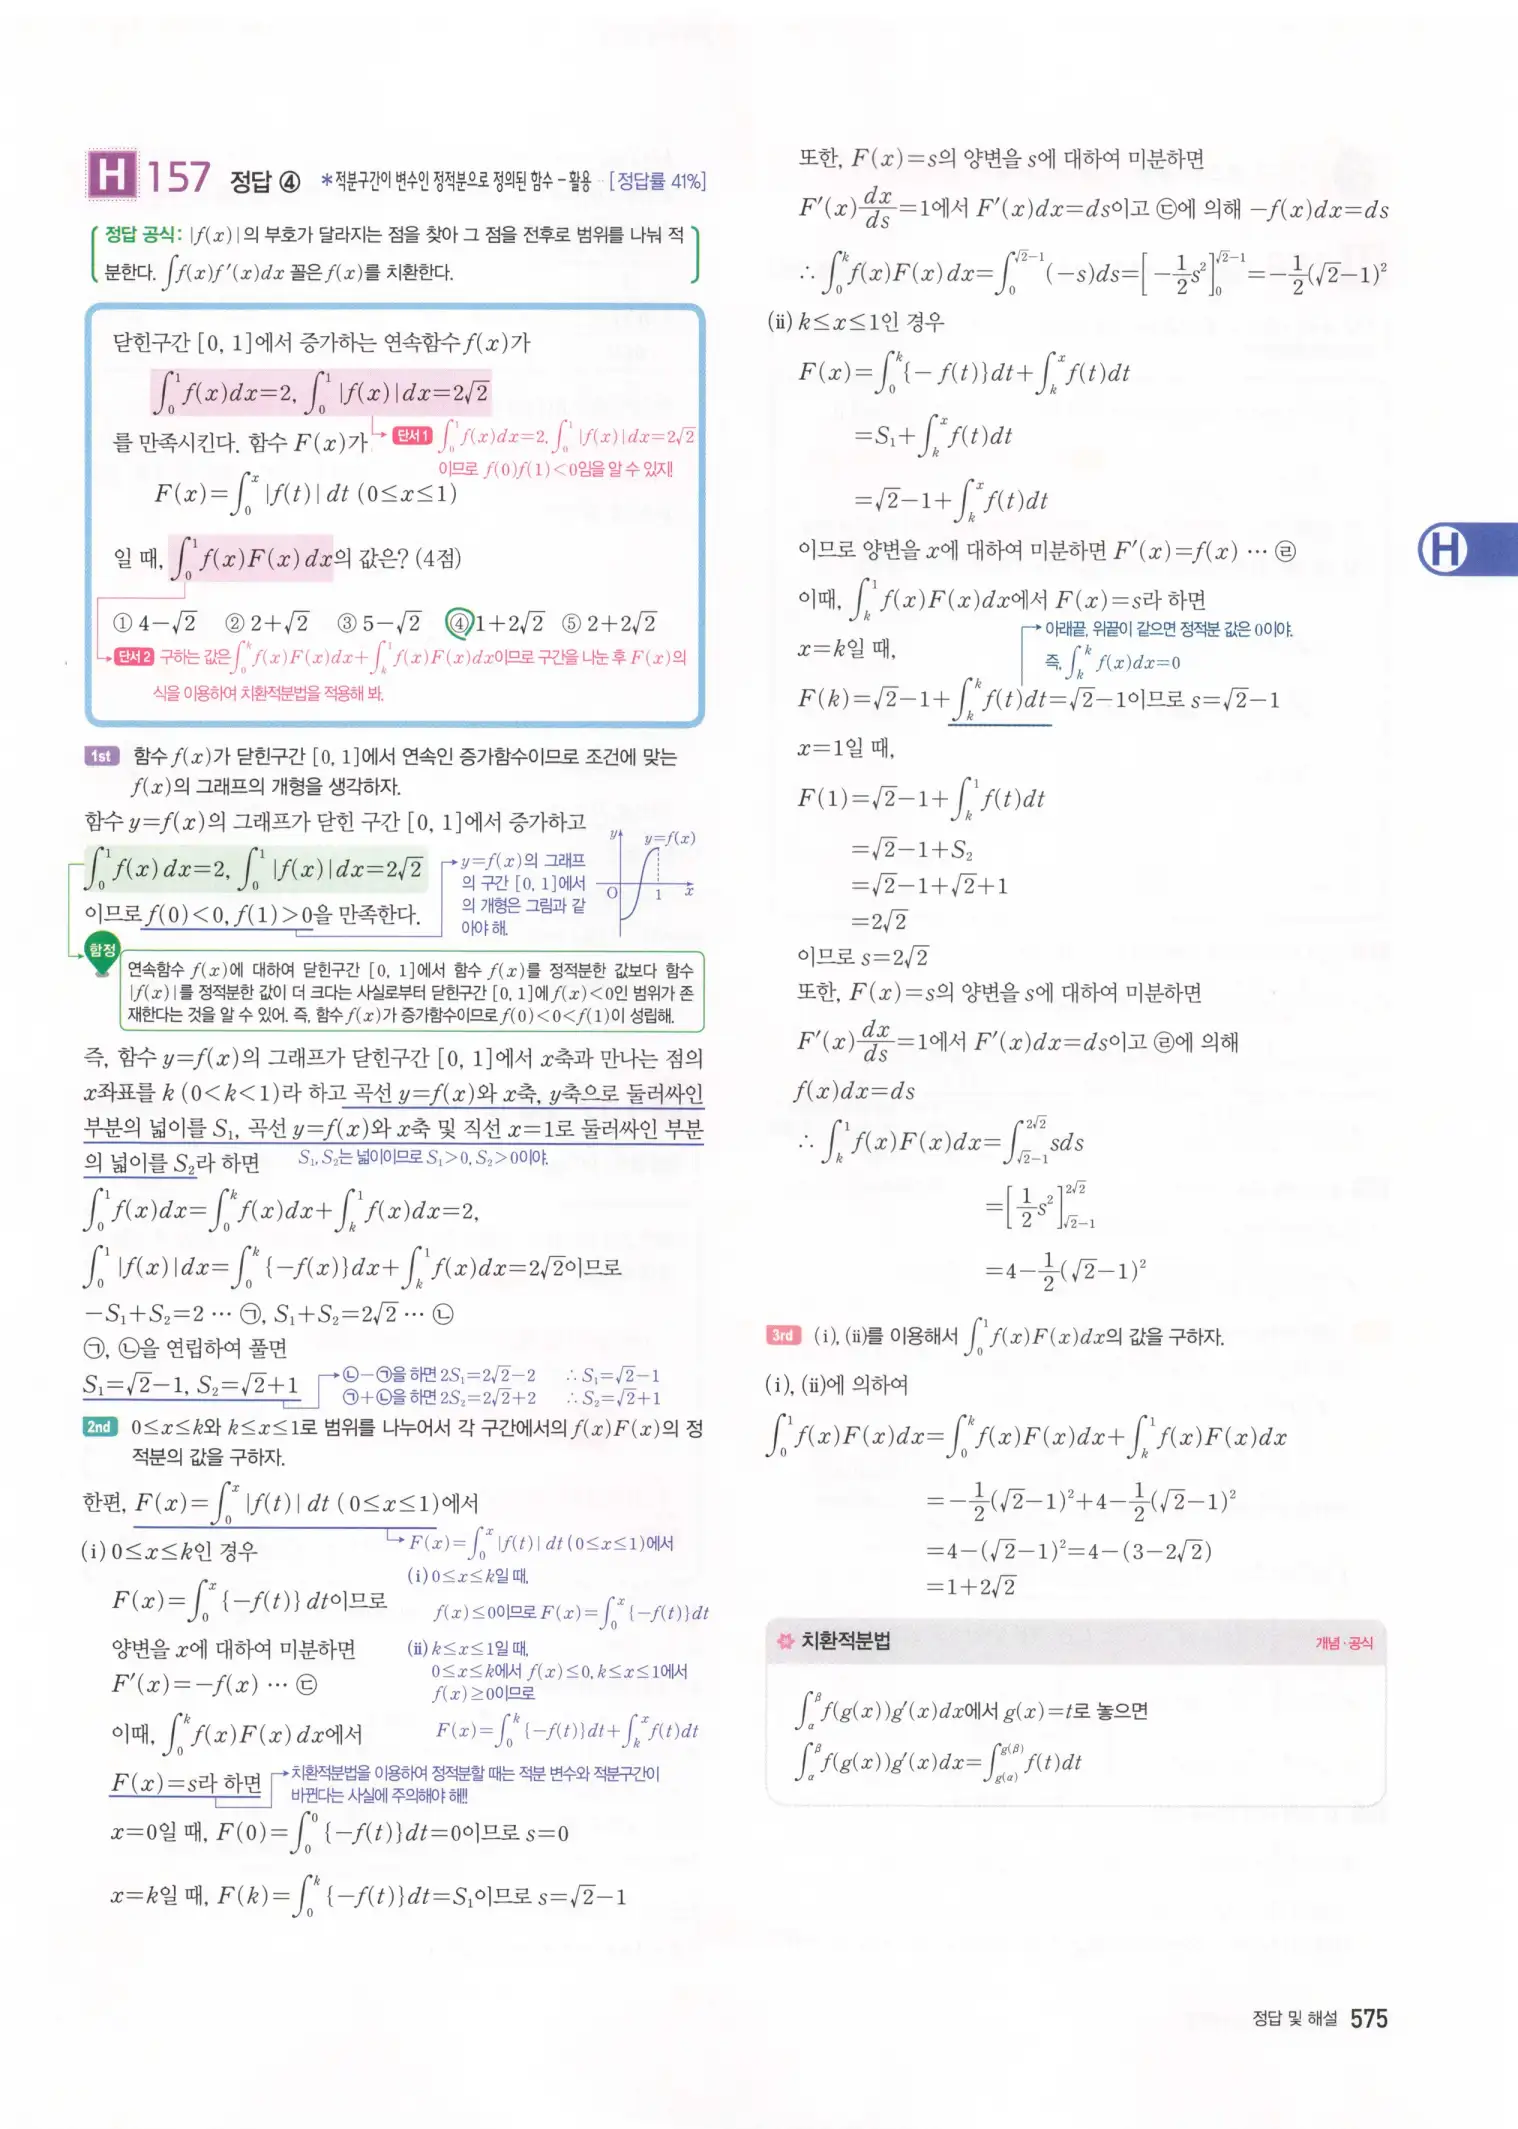 H 157 정답 ④ *적분구간이 변수인 정적분으로 정의된 함수 - 활용 ·· [정답률 41%]
정답 공식: |f(x)|의 부호가 달라지는 점을 찾아 그 점을 전후로 범위를 나눠 적
분한다. ∫f(x)f′(x)dx 꼴은 f(x)를 치환한다.
닫힌구간 [0, 1]에서 증가하는 연속함수 f(x)가
∫₀¹ f(x)dx=2, ∫₀¹ |f(x)|dx=2√2
를 만족시킨다. 함수 F(x)가
단서1 ∫₀¹ f(x)dx=2, ∫₀¹ |f(x)|dx=2√2
이므로 f(0)f(1)<0임을 알 수 있지!
F(x)=∫₀ˣ |f(t)| dt (0≤x≤1)
일 때, ∫₀¹ f(x)F(x)dx의 값은? (4점)
① 4-√2 ② 2+√2 ③ 5-√2 ④ 1+2√2 ⑤ 2+2√2
단서2 구하는 값은 ∫₀ᵏ f(x)F(x)dx+∫ₖ¹ f(x)F(x)dx이므로 구간을 나눈 후 F(x)의
식을 이용하여 치환적분법을 적용해 봐.
1st 함수 f(x)가 닫힌구간 [0, 1]에서 연속인 증가함수이므로 조건에 맞는
f(x)의 그래프의 개형을 생각하자.
함수 y=f(x)의 그래프가 닫힌 구간 [0, 1]에서 증가하고
∫₀¹ f(x)dx=2, ∫₀¹ |f(x)|dx=2√2
이므로 f(0)<0, f(1)>0을 만족한다.
y=f(x)의 그래프
의 구간 [0, 1]에서
의 개형은 그림과 같
아야 해.
y y=f(x)
O 1 x
함정
연속함수 f(x)에 대하여 닫힌구간 [0, 1]에서 함수 f(x)를 정적분한 값보다 함수
|f(x)|를 정적분한 값이 더 크다는 사실로부터 닫힌구간 [0, 1]에 f(x)<0인 범위가 존
재한다는 것을 알 수 있어. 즉, 함수 f(x)가 증가함수이므로 f(0)<0<f(1)이 성립해.
즉, 함수 y=f(x)의 그래프가 닫힌구간 [0, 1]에서 x축과 만나는 점의
x좌표를 k (0<k<1)라 하고 곡선 y=f(x)와 x축, y축으로 둘러싸인
부분의 넓이를 S₁, 곡선 y=f(x)와 x축 및 직선 x=1로 둘러싸인 부분
의 넓이를 S₂라 하면 S₁, S₂는 넓이이므로 S₁>0, S₂>0이야.
∫₀¹ f(x)dx=∫₀ᵏ f(x)dx+∫ₖ¹ f(x)dx=2,
∫₀¹ |f(x)|dx=∫₀ᵏ {-f(x)}dx+∫ₖ¹ f(x)dx=2√2이므로
-S₁+S₂=2 ··· ㉠, S₁+S₂=2√2 ··· ㉡
㉠, ㉡을 연립하여 풀면
S₁=√2-1, S₂=√2+1
㉡-㉠을 하면 2S₁=2√2-2 ∴ S₁=√2-1
㉠+㉡을 하면 2S₂=2√2+2 ∴ S₂=√2+1
2nd 0≤x≤k와 k≤x≤1로 범위를 나누어서 각 구간에서의 f(x)F(x)의 정
적분의 값을 구하자.
한편, F(x)=∫₀ˣ |f(t)| dt (0≤x≤1)에서
(ⅰ) 0≤x≤k인 경우
F(x)=∫₀ˣ {-f(t)} dt이므로
양변을 x에 대하여 미분하면
F′(x)=-f(x) ··· ㉢
이때, ∫₀ᵏ f(x)F(x)dx에서
F(x)=s라 하면
F(x)=∫₀ˣ |f(t)| dt (0≤x≤1)에서
(ⅰ) 0≤x≤k일 때,
f(x)≤0이므로 F(x)=∫₀ˣ {-f(t)}dt
(ⅱ) k≤x≤1일 때,
0≤x≤k에서 f(x)≤0, k≤x≤1에서
f(x)≥0이므로
F(x)=∫₀ᵏ {-f(t)}dt+∫ₖˣ f(t)dt
치환적분법을 이용하여 정적분할 때는 적분 변수와 적분구간이
바뀐다는 사실에 주의해야 해!!
x=0일 때, F(0)=∫₀⁰ {-f(t)}dt=0이므로 s=0
x=k일 때, F(k)=∫₀ᵏ {-f(t)}dt=S₁이므로 s=√2-1
또한, F(x)=s의 양변을 s에 대하여 미분하면
F′(x)dx/ds=1에서 F′(x)dx=ds이고 ㉢에 의해 -f(x)dx=ds
∴ ∫₀ᵏ f(x)F(x)dx=∫₀^(√2-1) (-s)ds=[-1/2 s²]₀^(√2-1)=-1/2(√2-1)²
(ⅱ) k≤x≤1인 경우
F(x)=∫₀ᵏ {-f(t)}dt+∫ₖˣ f(t)dt
=S₁+∫ₖˣ f(t)dt
=√2-1+∫ₖˣ f(t)dt
이므로 양변을 x에 대하여 미분하면 F′(x)=f(x) ··· ㉣
이때, ∫ₖ¹ f(x)F(x)dx에서 F(x)=s라 하면
x=k일 때,
아래끝, 위끝이 같으면 정적분 값은 0이야.
즉, ∫ₖᵏ f(x)dx=0
F(k)=√2-1+∫ₖᵏ f(t)dt=√2-1이므로 s=√2-1
x=1일 때,
F(1)=√2-1+∫ₖ¹ f(t)dt
=√2-1+S₂
=√2-1+√2+1
=2√2
이므로 s=2√2
또한, F(x)=s의 양변을 s에 대하여 미분하면
F′(x)dx/ds=1에서 F′(x)dx=ds이고 ㉣에 의해
f(x)dx=ds
∴ ∫ₖ¹ f(x)F(x)dx=∫_(√2-1)^(2√2) sds
=[1/2 s²]_(√2-1)^(2√2)
=4-1/2(√2-1)²
3rd (ⅰ), (ⅱ)를 이용해서 ∫₀¹ f(x)F(x)dx의 값을 구하자.
(ⅰ), (ⅱ)에 의하여
∫₀¹ f(x)F(x)dx=∫₀ᵏ f(x)F(x)dx+∫ₖ¹ f(x)F(x)dx
=-1/2(√2-1)²+4-1/2(√2-1)²
=4-(√2-1)²=4-(3-2√2)
=1+2√2
치환적분법 개념·공식
∫_α^β f(g(x))g′(x)dx에서 g(x)=t로 놓으면
∫_α^β f(g(x))g′(x)dx=∫_(g(α))^(g(β)) f(t)dt
H
정답 및 해설 575